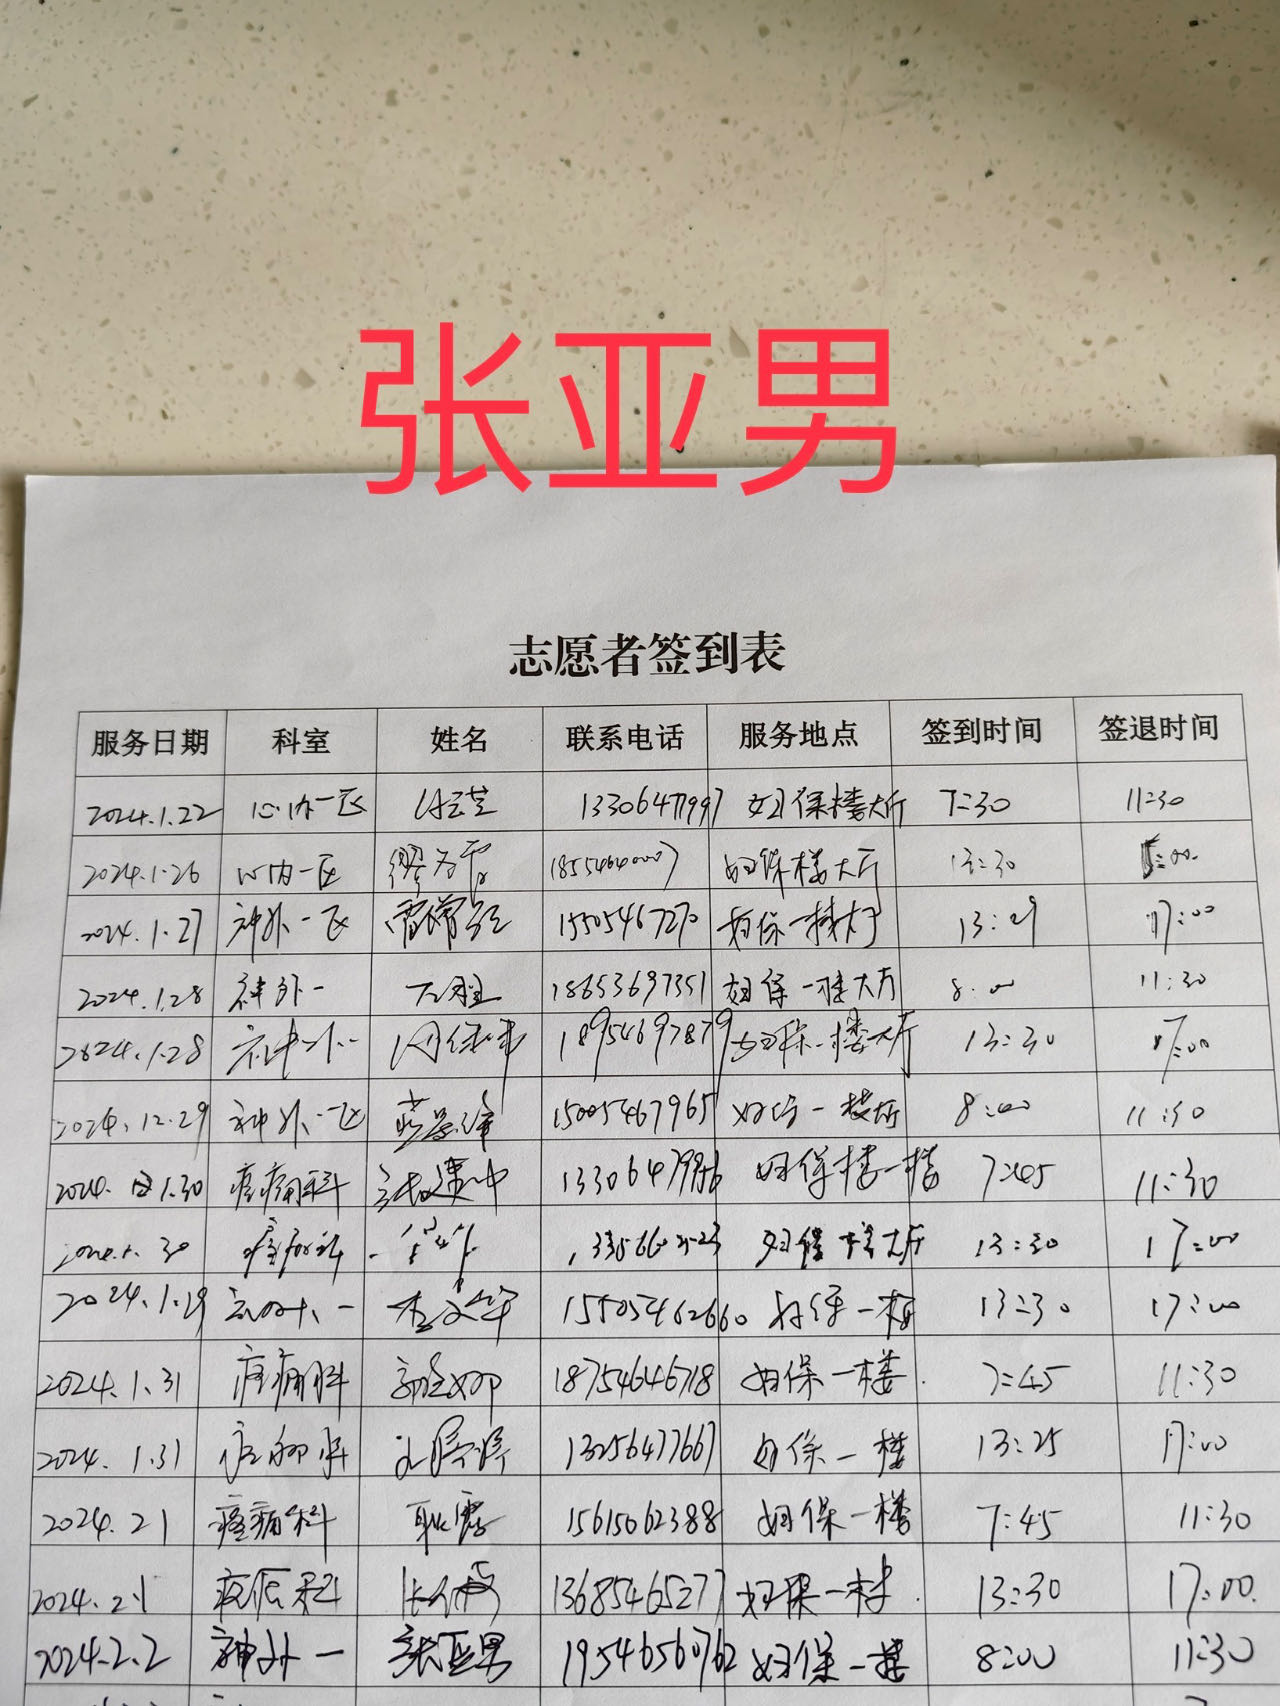 张亚男
志愿者签到表
服务日期 科室 姓名 联系电话 服务地点 签到时间 签退时间
2024.1.22 心内一区 13306477997 妇保楼大厅 7:30 11:30
2024.1.26 心内一区 妇保楼大厅 13:30
2024.1.27 神外一区 15505467270 妇保一楼大厅 13:29 17:00
2024.1.28 神外一 18653697351 妇保一楼大厅 8:00 11:30
2024.1.28 神外一 18954697879 妇保一楼大厅 13:30 17:00
2024.12.29 神外一区 15005467965 妇保一楼大厅 8:00 11:30
2024. 1.30 疼痛科 妇保楼一楼 7:45 11:30
疼痛科 妇保一楼大厅 13:30 17:00
2024.1.29 15505462660 妇保一楼 13:30 17:00
2024.1.31 疼痛科 18754646718 妇保一楼 7:45 11:30
2024.1.31 疼痛科 13256477667 妇保一楼 13:25 17:00
2024.2.1 疼痛科 耿霞 15615062388 妇保一楼 7:45 11:30
2024.2.1 疼痛科 13685465277 妇保一楼 13:30 17:00
2024.2.2 神外一 张亚男 19546560762 妇保一楼 8:00 11:30